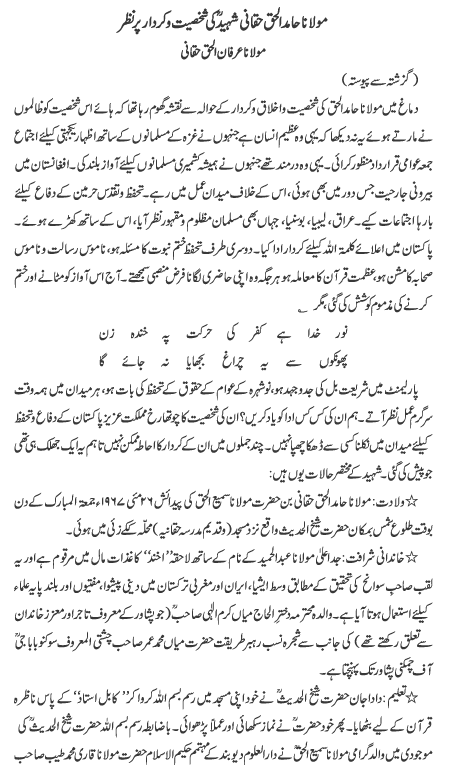 مولانا حامد الحق حقانی شہیدؒ کی شخصیت و کردار پر نظر
مولانا عرفان الحق حقانی
(گزشتہ سے پیوستہ)
دماغ میں مولانا حامد الحق کی شخصیت و اخلاق و کردار کے حوالہ سے نقشہ گھوم رہا تھا کہ ہائے اس شخصیت کو ظالموں
نے مارتے ہوئے یہ نہ دیکھا کہ یہی وہ عظیم انسان ہے جنہوں نے غزہ کے مسلمانوں کے ساتھ اظہار یکجہتی کیلئے اجتماع
جمعہ عوامی قرارداد منظور کرائی۔ یہی وہ دردمند تھے جنہوں نے ہمیشہ کشمیری مسلمانوں کیلئے آواز بلند کی۔ افغانستان میں
بیرونی جارحیت جس دور میں بھی ہوئی، اس کے خلاف میدان عمل میں رہے۔ تحفظ و تقدس حرمین کے دفاع کیلئے
بارہا اجتماعات کیے۔ عراق، لیبیا، بوسنیا، جہاں بھی مسلمان مظلوم و مقہور نظر آیا، اس کے ساتھ کھڑے ہوئے۔
پاکستان میں اعلائے کلمۃ اللہ کیلئے کردار ادا کیا۔ دوسری طرف تحفظ ختم نبوت کا مسئلہ ہو، ناموس رسالت و ناموس
صحابہ کا مشن ہو، عظمت قرآن کا معاملہ ہو ہر جگہ وہ اپنی حاضری لگانا فرض منصبی سمجھتے۔ آج اس آواز کو مٹانے اور ختم
کرنے کی مذموم کوشش کی گئی، مگر ؎
نور خدا ہے کفر کی حرکت پہ خندہ زن
پھونکوں سے یہ چراغ بجھایا نہ جائے گا
پارلیمنٹ میں شریعت بل کی جدوجہد ہو، نوشہرہ کے عوام کے حقوق کے تحفظ کی بات ہو، ہر میدان میں ہمہ وقت
سرگرم عمل نظر آتے۔ ہم ان کی کس کس ادا کو یاد کریں؟ ان کی شخصیت کا چوتھا رخ مملکت عزیز پاکستان کے دفاع و تحفظ
کیلئے میدان میں نکلنا کسی سے ڈھکا چھپا نہیں۔ چند جملوں میں ان کے کردار کا احاطہ ممکن نہیں تاہم یہ ایک جھلک ہی تھی
جو پیش کی گئی۔ شہید کے مختصر حالات یوں ہیں:
☆ ولادت: مولانا حامد الحق حقانی بن حضرت مولانا سمیع الحق کی پیدائش ۲۶ مئی ۱۹۶۷ء جمعۃ المبارک کے دن
بوقت طلوع شمس بمکان حضرت شیخ الحدیث واقع نزد مسجد (وقدیم مدرسہ حقانیہ) محلّہ ککے زئی میں ہوئی۔
☆ خاندانی شرافت: جد اعلیٰ مولانا عبدالحمید کے نام کے ساتھ لاحقہ ”اخند“ کاغذات مال میں مرقوم ہے اور یہ
لقب صاحب سوانح کی تحقیق کے مطابق وسط ایشیا، ایران اور مغربی ترکستان میں دینی پیشوا، مفتیوں اور بلند پایہ علماء
کیلئے استعمال ہوتا آیا ہے۔ والدہ محترمہ دختر الحاج میاں کرم الٰہی صاحبؒ (جو پشاور کے معروف تاجر اور معزز خاندان
سے تعلق رکھتے تھے) کی جانب سے شجرہ نسب رہبر طریقت حضرت میاں محمد عمر صاحب چشتی المعروف سوکنو باباجیؒ
آف چمکنی پشاور تک پہنچتا ہے۔
☆ تعلیم: دادا جان حضرت شیخ الحدیثؒ نے خود اپنی مسجد میں رسم بسم اللہ کروا کر ”کابل استاذ“ کے پاس ناظرہ
قرآن کے لیے بٹھایا۔ پھر خود حضرتؒ نے نماز سکھائی اور عملاً پڑھوائی۔ باضابطہ رسم بسم اللہ حضرت شیخ الحدیثؒ کی
موجودگی میں والد گرامی مولانا سمیع الحقؒ نے دارالعلوم دیوبند کے مہتمم حکیم الاسلام حضرت مولانا قاری محمد طیب صاحب